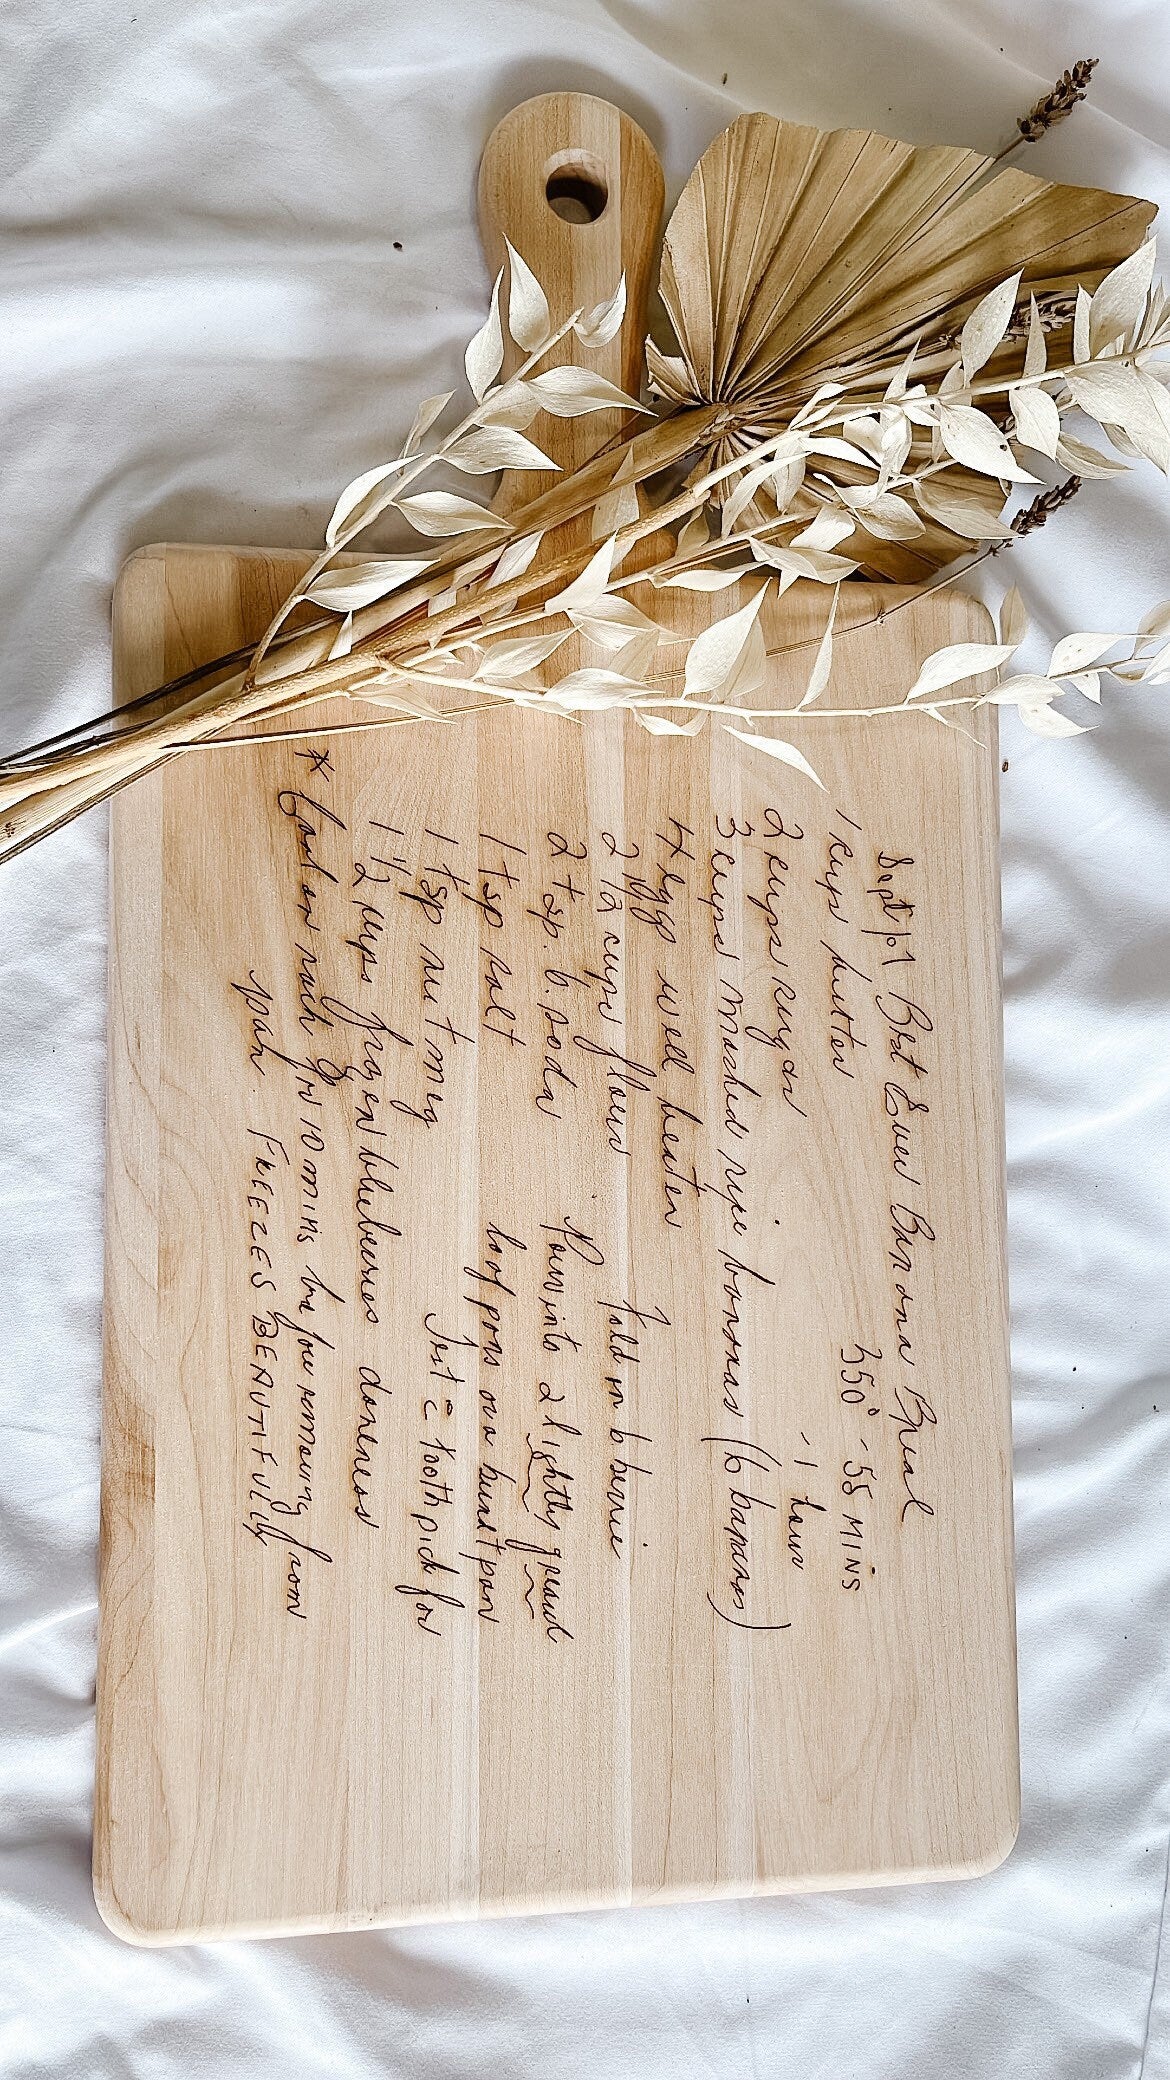 Best Ever Banana Bread
1 cups butter 350° - 55 MINS
2 cups sugar - 1 hour
3 cups mashed ripe bananas (6 bananas)
4 eggs well beaten
2 1/2 cups flour Fold in berrie
2 tsp. b. soda Pour into 2 lightly greased
1 tsp salt loaf pans or a bundt pan
1 tsp nutmeg Test c̄ toothpick for
1 1/2 cups frozen blueberries doneness
* Cool on rack for 10 mins before removing from
pan. FREEZES BEAUTIFULLY